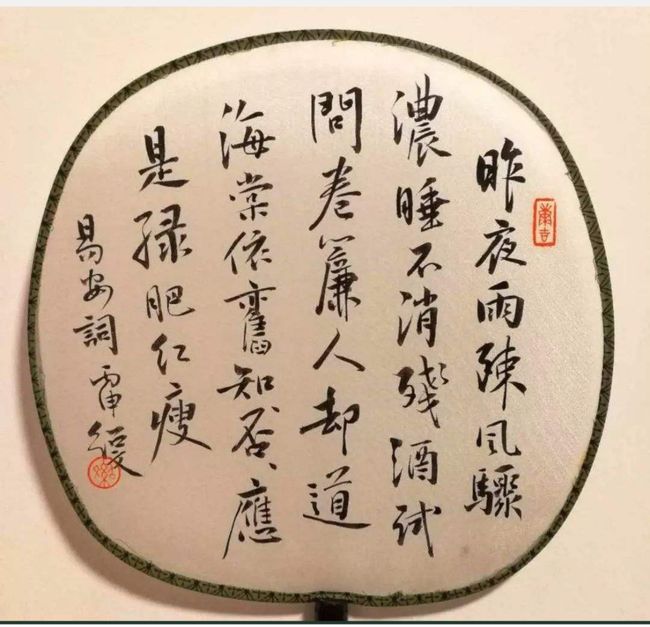 昨夜雨疎风驟
濃睡不消殘酒試
問卷簾人却道
海棠依舊知否、應
是绿肥红瘦
易安詞